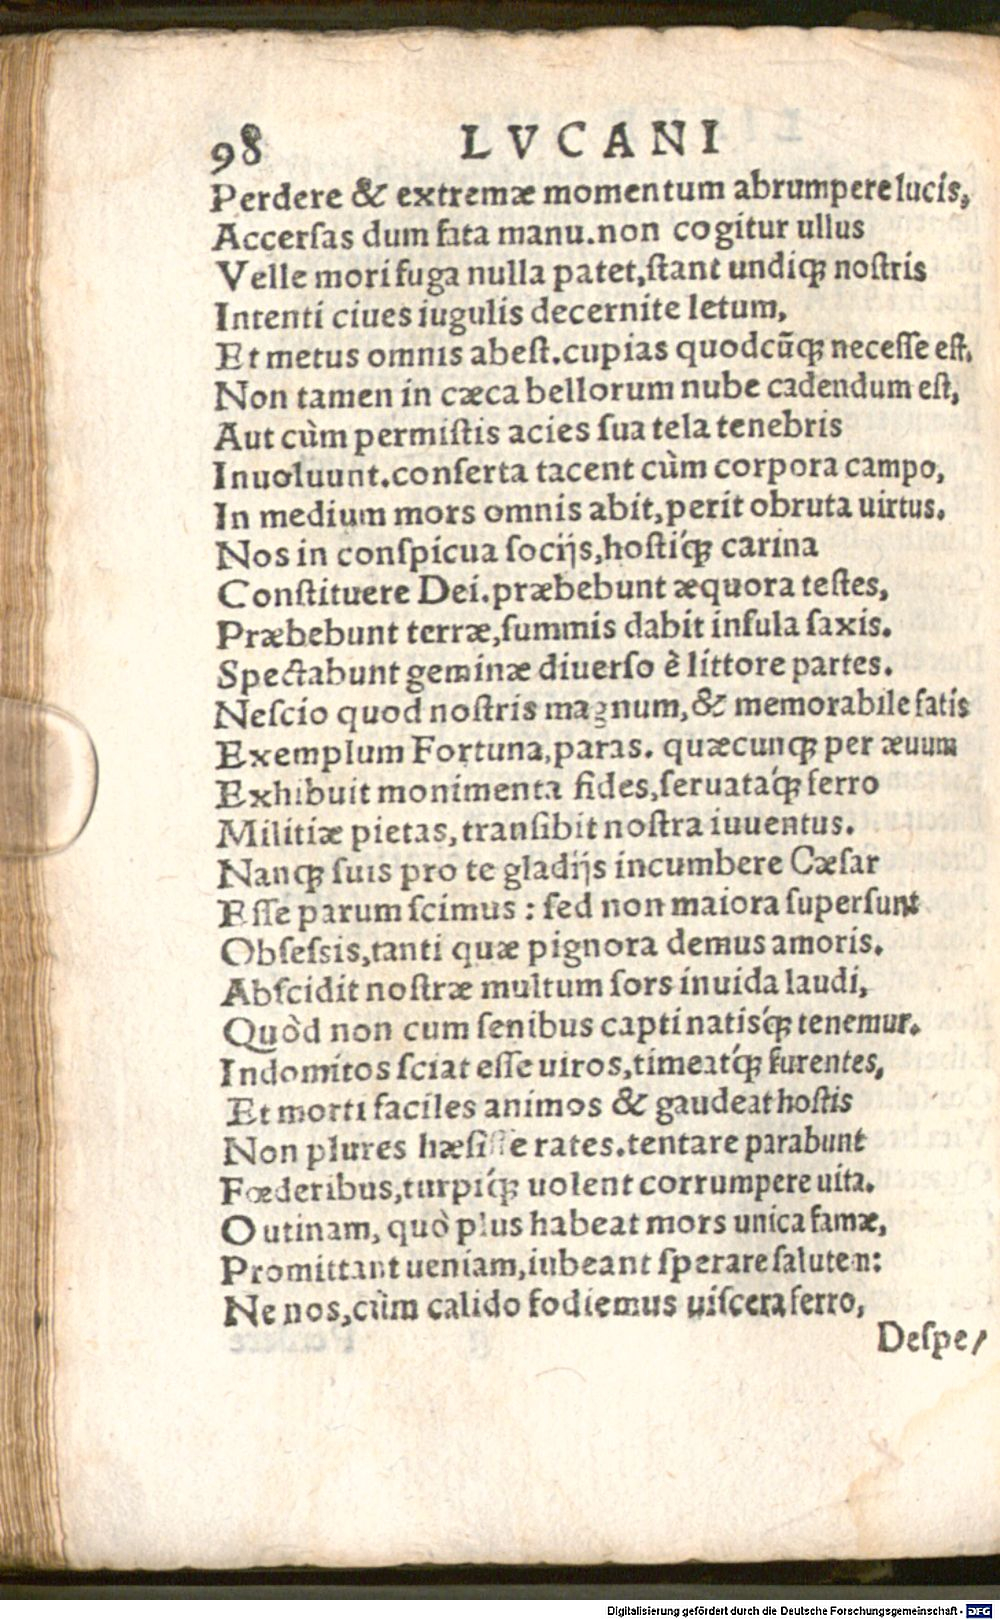 98 LVCANI
Perdere & extremæ momentum abrumpere lucis,
Accerſas dum fata manu.non cogitur ullus
Velle mori fuga nulla patet,ſtant undiqꝫ noſtris
Intenti ciues iugulis decernite letum,
Et metus omnis abeſt.cupias quodcũqꝫ neceſſe eſt.
Non tamen in cæca bellorum nube cadendum eſt,
Aut cùm permiſtis acies ſua tela tenebris
Inuoluunt.conſerta tacent cùm corpora campo,
In medium mors omnis abit,perit obruta uirtus.
Nos in conſpicua ſocijs,hoſtíqꝫ carina
Conſtituere Dei.præbebunt æquora teſtes,
Præbebunt terræ,ſummis dabit inſula ſaxis.
Spectabunt geminæ diuerſo è littore partes.
Neſcio quod noſtris magnum,& memorabile fatis
Exemplum Fortuna,paras. quæcunqꝫ per æuum
Exhibuit monimenta fides,ſeruatáqꝫ ferro
Militiæ pietas,tranſibit noſtra iuuentus.
Nanqꝫ ſuis pro te gladijs incumbere Cæſar
Eſſe parum ſcimus : ſed non maiora ſuperſunt
Obſeſsis,tanti quæ pignora demus amoris.
Abſcidit noſtræ multum ſors inuida laudi,
Quòd non cum ſenibus capti natisq́ꝫ tenemur.
Indomitos ſciat eſſe uiros,timeatq́ꝫ furentes,
Et morti faciles animos & gaudeat hoſtis
Non plures hæſiſſe rates.tentare parabunt
Fœderibus,turpíqꝫ uolent corrumpere uita.
O utinam, quò plus habeat mors unica famæ,
Promittant ueniam,iubeant ſperare ſalutem:
Ne nos,cùm calido fodiemus uiſcera ferro,
Deſpe/
Digitalisierung gefördert durch die Deutsche Forschungsgemeinschaft - DFG